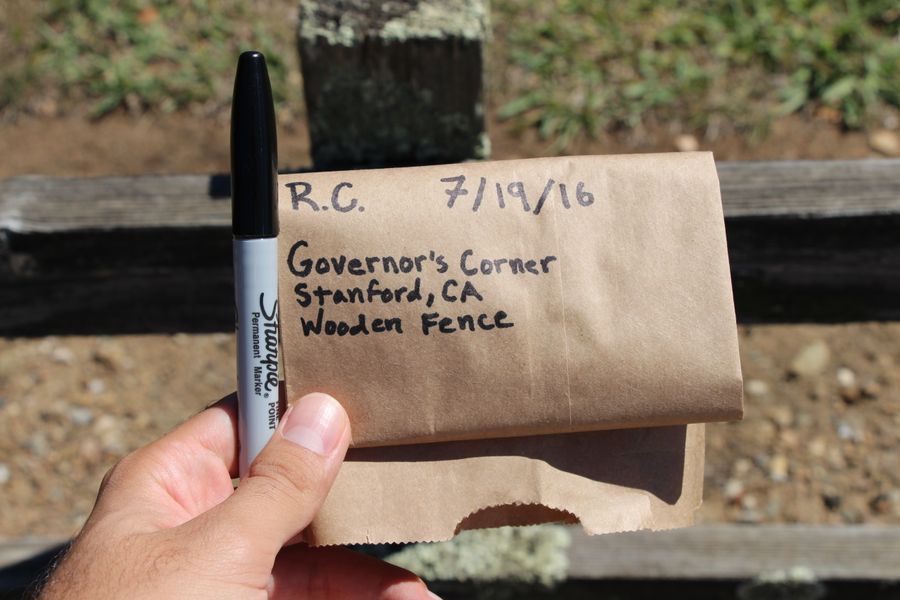 R.C. 7/19/16
Governor's Corner
Stanford, CA
Wooden Fence
Sharpie®
Permanent Marker
POINT